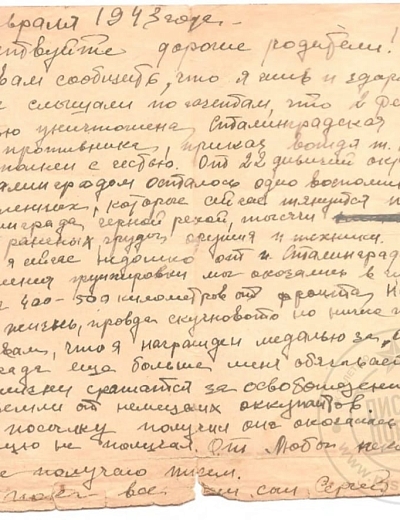 враля 1943 года.
ствуйте дорогие родители!
вам сообщить, что я жив и здоро
смышали по газетам, что в фе
ю уничтожена Сталинградская
противника, приказ вождя т.
полнен с честью. От 22 дивизий окру
алинградом осталось одно воспоми
ленных, которые сейчас тянутся
инграда черной рекой, тысячи
раненых груды оружия и техники.
я сейчас недалеко от г. Сталинград
группировки мы оказались в
400-500 километров от фронта. Н
жизнь, правда скучновато но ничего
вам, что я награжден медалью за „
еще больше меня обязывает
сражатся за освобождени
земли от немецких оккупантов.
посылку получил она оказалась
не получал. От Любы
е получаю писем.
все сын Сергей